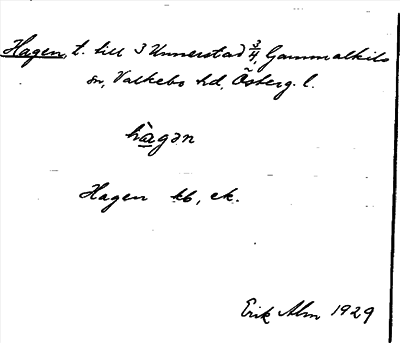 Hagen, t. till 3 Unnerstad 3/4, Gammalkils
sn, Valkebo hd, Österg. l.
hàgən
Hagen kb, ek.
Erik Alm 1929